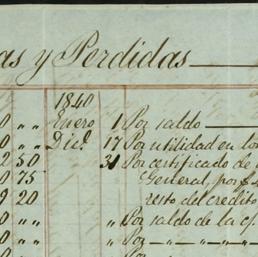 as y Perdidas
1840
0 " " Enero 1 Por saldo
0 " " Dicᵉ 17 Por utilidad en los
2 50 31 Por certificado de
0 75 General, por
9 20 resto del credito
0 " " " Por saldo de la c/.
0 " " " Por -"-"-"-"-